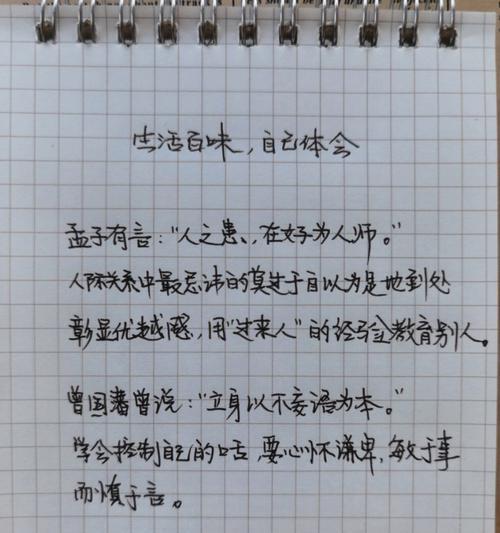 生活百味，自己体会
孟子有言：“人之患，在好为人师。”
人际关系中最忌讳的莫过于自以为是地到处
彰显优越感，用“过来人”的经验教育别人。
曾国藩曾说：“立身以不妄语为本。”
学会控制自己的话，要心怀谦卑，敏于事
而慎于言。